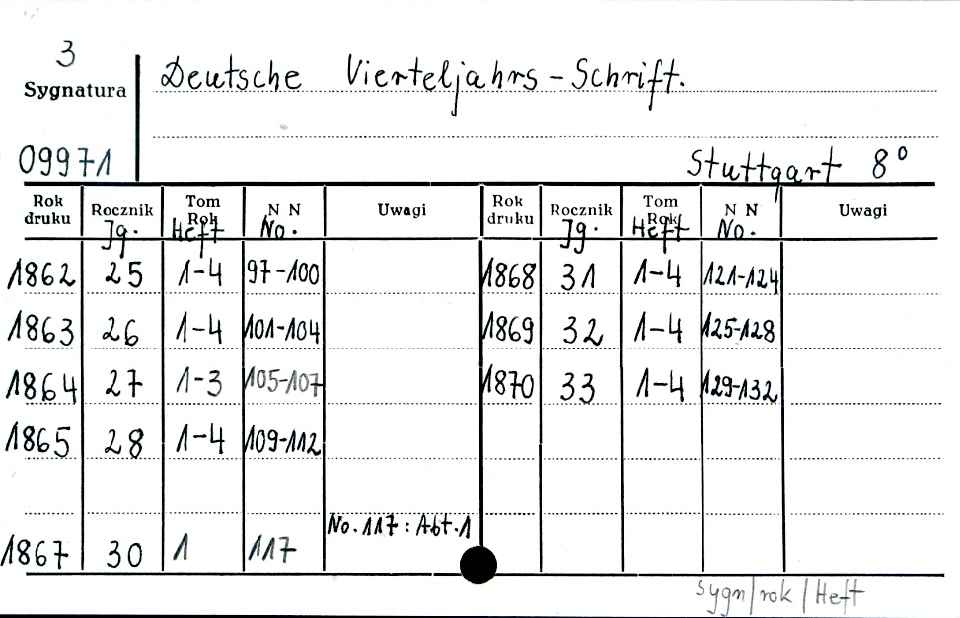 3
Sygnatura
Deutsche Vierteljahrs-Schrift.
09971
Stuttgart 8°
Rok druku Rocznik Tom Rok N N Uwagi Rok druku Rocznik Tom Rok N N Uwagi
Jg. Heft No. Jg. Heft No.
1862 25 1-4 97-100 1868 31 1-4 121-124
1863 26 1-4 101-104 1869 32 1-4 125-128
1864 27 1-3 105-107 1870 33 1-4 129-132
1865 28 1-4 109-112
No. 117: Abt. 1
1867 30 1 117
sygn/rok/Heft